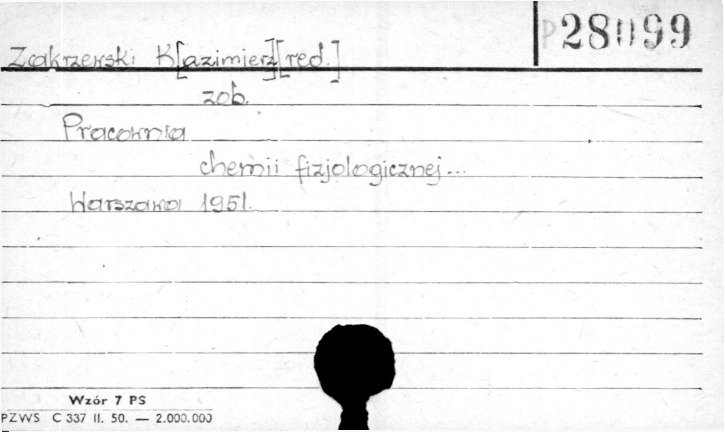 P28099
Zakrzewski K[azimierz][red.]
zob.
Pracownia
chemii fizjologicznej...
Warszawa 1951.
Wzór 7 PS
PZWS C 337 II. 50. — 2.000.000